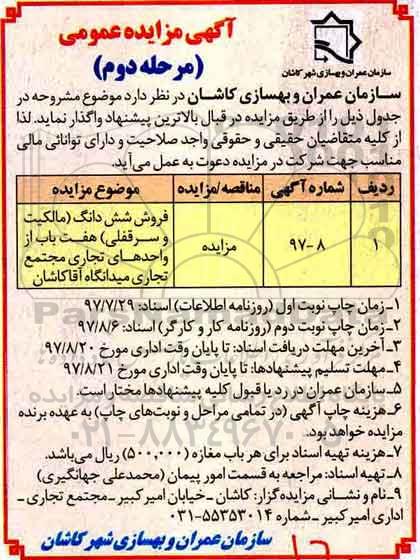 آگهی مزایده عمومی
(مرحله دوم)
سازمان عمران و بهسازی شهر کاشان
سازمان عمران و بهسازی کاشان در نظر دارد موضوع مشروحه در
جدول ذیل را از طریق مزایده در قبال بالاترین پیشنهاد واگذار نماید. لذا
از کلیه متقاضیان حقیقی و حقوقی واجد صلاحیت و دارای توانائی مالی
مناسب جهت شرکت در مزایده دعوت به عمل می‌آید.
ردیف شماره آگهی مناقصه/مزایده موضوع مزایده
۱ ۹۷-۸ مزایده فروش شش دانگ (مالکیت
و سرقفلی) هفت باب از
واحدهای تجاری مجتمع
تجاری میدانگاه آقاکاشان
۱ـ زمان چاپ نوبت اول (روزنامه اطلاعات) اسناد: ۹۷/۷/۲۹
۲ـ زمان چاپ نوبت دوم (روزنامه کار و کارگر) اسناد: ۹۷/۸/۶
۳ـ آخرین مهلت دریافت اسناد: تا پایان وقت اداری مورخ ۹۷/۸/۲۰
۴ـ مهلت تسلیم پیشنهادها: تا پایان وقت اداری مورخ ۹۷/۸/۲۱
۵ـ سازمان عمران در رد یا قبول کلیه پیشنهادها مختار است.
۶ـ هزینه چاپ آگهی (در تمامی مراحل و نوبت‌های چاپ) به عهده برنده
مزایده خواهد بود.
۷ـ هزینه تهیه اسناد برای هر باب مغازه (۵۰۰,۰۰۰) ریال می‌باشد.
۸ـ تهیه اسناد: مراجعه به قسمت امور پیمان (محمدعلی جهانگیری)
۹ـ نام و نشانی مزایده‌گزار: کاشان ـ خیابان امیرکبیر ـ مجتمع تجاری ـ
اداری امیرکبیر ـ شماره ۵۵۳۵۳۰۱۴-۰۳۱
سازمان عمران و بهسازی شهر کاشان
ParsNamadData
۰۲۱-۸۸۳۴۹۶۷۰